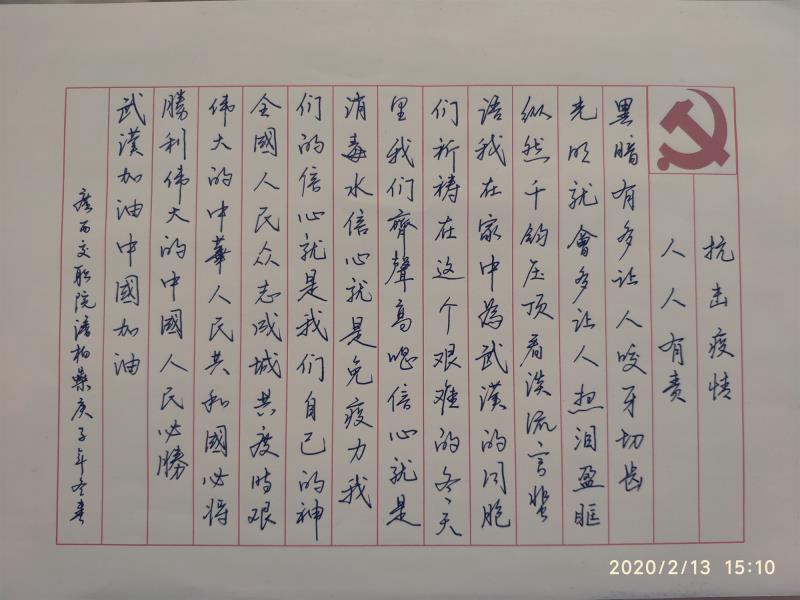 抗击疫情
人人有责
黑暗有多让人咬牙切齿
光明就會多让人热泪盈眶
纵然千鈞压顶看淡流言蜚
语我在家中為武漢的同胞
们祈祷在这个艰难的冬天
里我们齊聲高唱信心就是
消毒水信心就是免疫力我
们的信心就是我们自己的神
全國人民众志成城共度時艰
伟大的中華人民共和國必将
勝利伟大的中國人民必勝
武漢加油中國加油
广西交职院潘柏樂庚子年冬春
2020/2/13 15:10